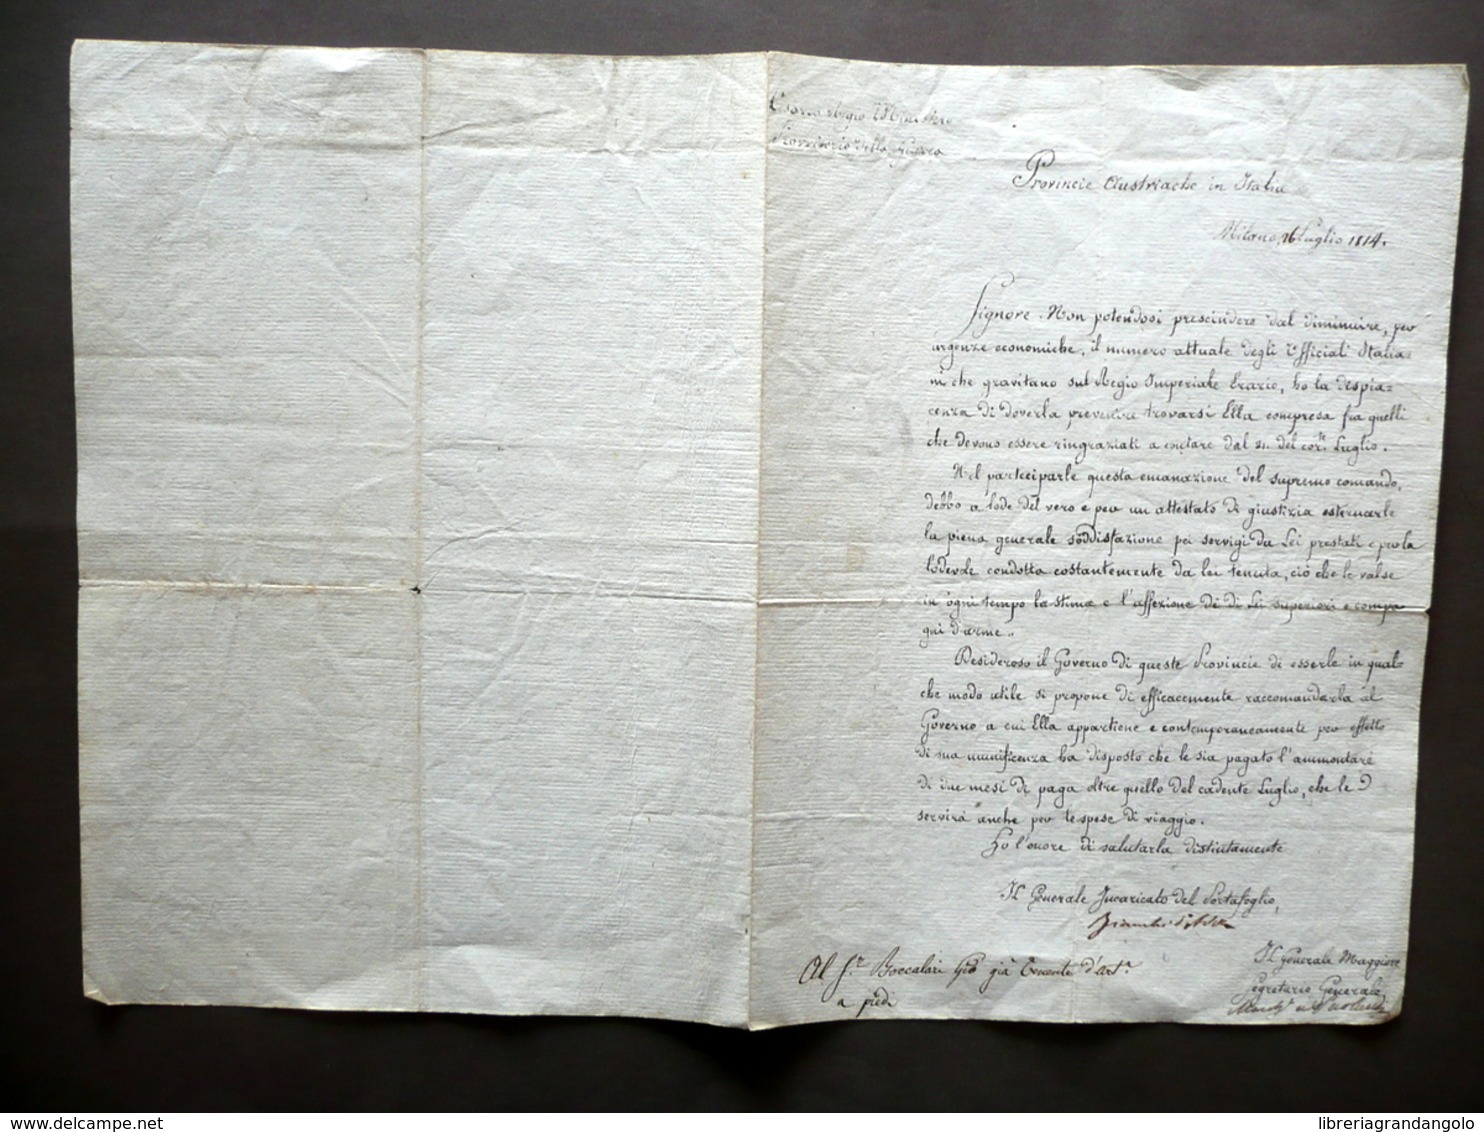 Cesareo Regio Ministero
Provvisorio della Guerra
Provincie Austriache in Italia
Milano, 26 Luglio 1814.
Signore. Non potendosi prescindere dal diminuire, per
urgenze economiche, il numero attuale degli Ufficiali Italia=
ni che gravitano sul Regio Imperiale Erario, ho la despia=
cenza di doverla prevenire trovarsi Ella compresa fra quelli
che devono essere ringraziati a contare dal 31. del corr.te Luglio.
Nel parteciparle questa emanazione del supremo comando,
debbo a lode del vero e per un attestato di giustizia esternarle
la piena generale soddisfazione pei servigi da Lei prestati e per la
lodevole condotta costantemente da lei tenuta, ciò che le valse
in ogni tempo la stima e l'affezione de di Lei superiori e compa
gni d'arme.
Desideroso il Governo di queste Provincie di esserle in qual=
che modo utile si propone di efficacemente raccomandarla al
Governo a cui Ella appartiene e contemporaneamente per effetto
di sua munificenza ha disposto che le sia pagato l'ammontare
di due mesi di paga oltre quello del cadente Luglio, che le
servirà anche per le spese di viaggio.
Ho l'onore di salutarla distintamente
Il Generale Incaricato del Portafoglio,
Bianchi d'Adda
Il Generale Maggiore
Segretario Generale
Al S.r Boccalari Gio già Tenente d'art.a
a piedi
libreriagrandangolo
delcampe.net